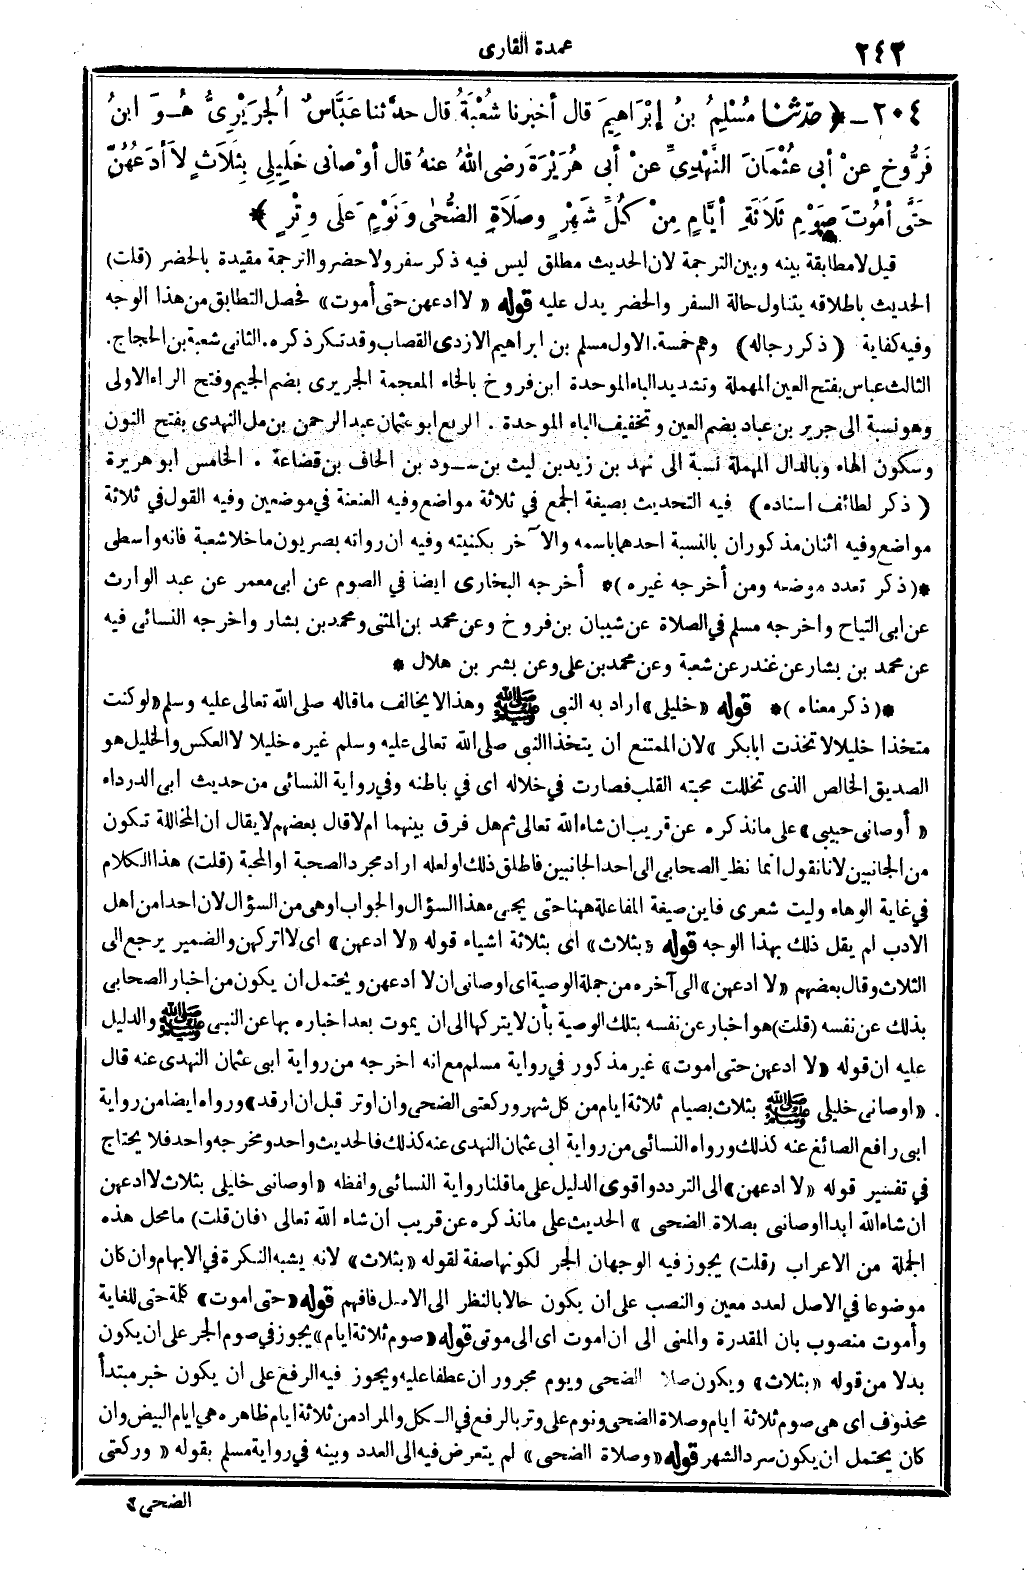 ٢٤٢
عمدة القارى
٢٠٤ ـ ﴿ حَدَّثنا مُسْلِمُ بنُ إِبْرَاهِيمَ قال أخبرنا شُعْبَةُ قال حدَّثنا عَبَّاسٌ الْجُرَيْرِيُّ هُـوَ ابنُ
فَرُّوخٍ عنْ أبى عُثْمَانَ النَّهْدِيِّ عنْ أبى هُرَيْرَةَ رضى اللهُ عنهُ قال أوْصانى خَلِيلِى بِثَلَاثٍ لاَ أدَعُهُنَّ
حَتَّى أمُوتَ صَوْمِ ثَلَاثَةِ أيَّامٍ مِنْ كُلِّ شَهْرٍ وصَلَاةِ الضُّحَى وَنَوْمٍ عَلَى وِتْرٍ ﴾
قيل لا مطابقة بينه وبين الترجمة لان الحديث مطلق ليس فيه ذكر سفر ولا حضر والترجمة مقيدة بالحضر (قلت)
الحديث باطلاقه يتناول حالة السفر والحضر يدل عليه قوله « لا ادعهن حتى أموت » فحصل التطابق من هذا الوجه
وفيه كفاية ( ذكر رجاله ) وهم خمسة. الاول مسلم بن ابراهيم الازدى القصاب وقد تكرر ذكره. الثانى شعبة بن الحجاج.
الثالث عباس بفتح العين المهملة وتشديد الباء الموحدة ابن فروخ بالخاء المعجمة الجريرى بضم الجيم وفتح الراء الاولى
وهو نسبة الى جرير بن عباد بضم العين وتخفيف الباء الموحدة . الربع ابو عثمان عبد الرحمن بن مل النهدى بفتح النون
وسكون الهاء وبالدال المهملة نسبة الى نهد بن زيد بن ليث بن ســود بن الحاف بن قضاعة . الخامس ابو هريرة
( ذكر لطائف اسناده ) فيه التحديث بصيغة الجمع في ثلاثة مواضع وفيه العنعنة في موضعين وفيه القول في ثلاثة
مواضع وفيه اثنان مذكوران بالنسبة احدهما باسمه والآخر بكنيته وفيه ان رواته بصريون ما خلا شعبة فانه واسطى
*( ذكر تعدد موضعه ومن أخرجه غيره )* أخرجه البخارى ايضا في الصوم عن ابى معمر عن عبد الوارث
عن ابى التياح واخرجه مسلم في الصلاة عن شيبان بن فروخ وعن محمد بن المثنى ومحمد بن بشار واخرجه النسائى فيه
عن محمد بن بشار عن غندر عن شعبة وعن محمد بن على وعن بشر بن هلال *
*( ذكر معناه )* قوله «خليلى» اراد به النبى ﷺ وهذا لا يخالف ما قاله صلى الله تعالى عليه وسلم «لو كنت
متخذا خليلا لاتخذت ابابكر » لان الممتنع ان يتخذ النبى صلى الله تعالى عليه وسلم غيره خليلا لا العكس والخليل هو
الصديق الخالص الذى تخللت محبته القلب فصارت في خلاله اى في باطنه وفي رواية النسائى من حديث ابى الدرداء
« أوصانى حبيبى» على ما نذكره عن قريب ان شاء الله تعالى ثم هل فرق بينهما ام لا قال بعضهم لا يقال ان المخاللة تكون
من الجانبين لانا نقول انما نظر الصحابى الى احد الجانبين فاطلق ذلك او لعله اراد مجرد الصحبة او المحبة (قلت) هذا الكلام
في غاية الوهاء وليت شعرى فاين صيغة المفاعلة ههنا حتى يجىء هذا السؤال والجواب اوهى من السؤال لان احدا من اهل
الادب لم يقل ذلك بهذا الوجه قوله «بثلاث» اى بثلاثة اشياء قوله «لا ادعهن» اى لا اتركهن والضمير يرجع الى
الثلاث وقال بعضهم «لا ادعهن» الى آخره من جملة الوصية اى اوصانى ان لا ادعهن ويحتمل ان يكون من اخبار الصحابى
بذلك عن نفسه (قلت) هو اخبار عن نفسه بتلك الوصية بأن لا يتركها الى ان يموت بعد اخباره بها عن النبى ﷺ والدليل
عليه ان قوله «لا ادعهن حتى اموت» غير مذكور في رواية مسلم مع انه اخرجه من رواية ابى عثمان النهدى عنه قال
«اوصانى خليلى ﷺ بثلاث بصيام ثلاثة ايام من كل شهر وركعتى الضحى وان اوتر قبل ان ارقد» ورواه ايضا من رواية
ابى رافع الصائغ عنه كذلك ورواه النسائى من رواية ابى عثمان النهدى عنه كذلك فالحديث واحد ومخرجه واحد فلا يحتاج
في تفسير قوله «لا ادعهن» الى التردد واقوى الدليل على ما قلنا رواية النسائى ولفظه «اوصانى خليلى بثلاث لا ادعهن
ان شاء الله ابدا اوصانى بصلاة الضحى » الحديث على ما نذكره عن قريب ان شاء الله تعالى (فان قلت) ما محل هذه
الجملة من الاعراب (قلت) يجوز فيه الوجهان الجر لكونها صفة لقوله «بثلاث» لانه يشبه النكرة في الابهام وان كان
موضوعا في الاصل لعدد معين والنصب على ان يكون حالا بالنظر الى الاصل فافهم قوله «حتى اموت» كلمة حتى للغاية
وأموت منصوب بان المقدرة والمعنى الى ان اموت اى الى موتى قوله «صوم ثلاثة ايام» يجوز في صوم الجر على ان يكون
بدلا من قوله «بثلاث» ويكون صلاة الضحى ويوم مجرور ان عطفا عليه ويجوز فيه الرفع على ان يكون خبر مبتدأ
محذوف اى هى صوم ثلاثة ايام وصلاة الضحى ونوم على وتر بالرفع في الـكل والمراد من ثلاثة ايام ظاهره هى ايام البيض وان
كان يحتمل ان يكون سرد الشهر قوله «وصلاة الضحى» لم يتعرض فيه الى العدد وبينه في رواية مسلم بقوله « وركعتى
الضحى »